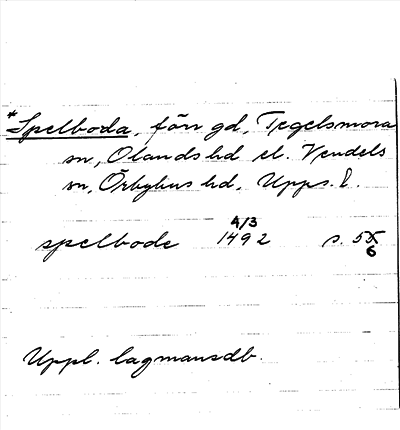 *Spelboda, förr gd, Tegelsmora
sn, Olands hd el. Vendels
sn, Örbyhus hd, Upps. l.
4/3
spelbode 1492 s. 5X
6
Uppl. lagmansdb.